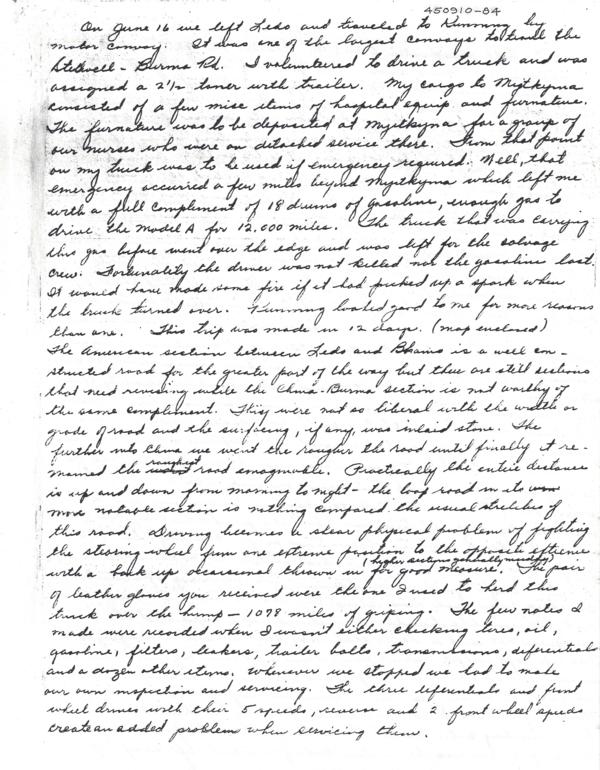 450910-84
On June 16 we left Ledo and traveled to Kunming by
motor convoy. It was one of the largest convoys to travel the
Stilwell - Burma Rd. I volunteered to drive a truck and was
assigned a 2½ toner with trailer. My cargo to Myitkyina
consisted of a few misc items of hospital equip and furnature.
The furnature was to be deposited at Myitkyna for a group of
our nurses who were on detached service there. From that point
on my truck was to be used if emergency required. Well, that
emergency occurred a few miles beyond Myitkyna which left me
with a full compliment of 18 drums of gasoline, enough gas to
drive the Model A for 12,000 miles. The truck that was carrying
this gas before went over the edge and was left for the salvage
crew. Fortunately the driver was not killed nor the gasoline lost.
It would have made some fire if it had picked up a spark when
the truck turned over. Kunming looked good to me for more reasons
than one. This trip was made in 12 days. (map enclosed)
The American section between Ledo and Bhamo is a well con-
structed road for the greater part of the way but there are still sections
that need revising while the China-Burma section is not worthy of
the same compliment. They were not so liberal with the width or
grade of road and the surfacing, if any, was inlaid stone. The
further into China we went the rougher the road until finally it re-
mained the roughest road imaginable. Practically the entire distance
is up and down from morning to night - the loop road in its
more notable section is nothing compared the usual stretches of
this road. Driving becomes a shear physical problem of fighting
the steering wheel from one extreme position to the opposite extreme
(higher sections generally muddy)
with a back up occasional thrown in for good measure. The pair
of leather gloves you received were the one I used to herd this
truck over the hump - 1078 miles of griping. The few notes I
made were recorded when I wasn't either checking tires, oil,
gasoline, filters, leakers, trailer bolts, transmissions, deferentials
and a dozen other items. Whenever we stopped we had to make
our own inspection and servicing. The three deferentials and front
wheel drives with their 5 speeds, reverse and 2 front wheel speeds
create an added problem when servicing them.